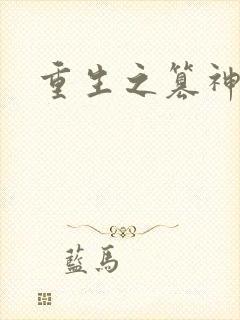 重生之篡神
藍馬